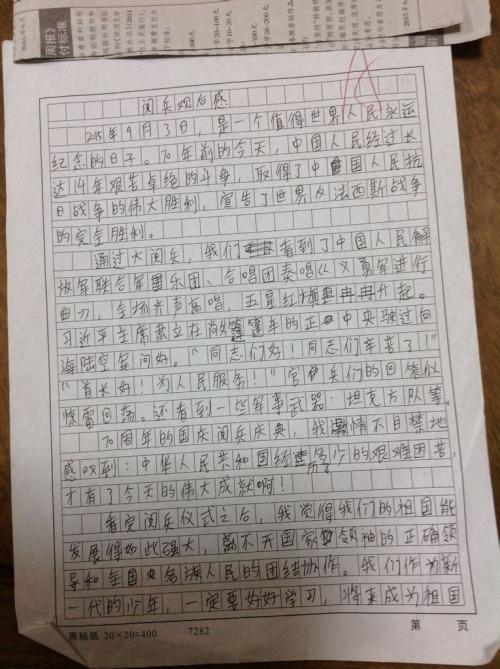 2015年6月
周报》
付标准
字20-100元
字10-20元
字50-200元
2015年6月
A
阅兵观后感
2015年9月3日，是一个值得世界人民永远
纪念的日子。70年前的今天，中国人民经过长
达14年艰苦卓绝的斗争，取得了中国人民抗
日战争的伟大胜利，宣告了世界反法西斯战争
的完全胜利。
通过大阅兵，我们看到了中国人民解
放军联合军乐团、合唱团奏唱《义勇军进行
曲》，全场齐声高唱，五星红旗冉冉升起。
习近平主席肃立在敞篷车的正中央驶过向
海陆空军问好。“同志们好！同志们辛苦了！”
“首长好！为人民服务！”官兵们的回答似
惊雷回荡。还看到一些军事武器：坦克方队等。
70周年的国庆阅兵庆典，我激情不自禁地
感叹到：中华人民共和国经历了多少的艰难困苦，
才有了今天的伟大成就啊！
看完阅兵仪式之后，我觉得我们的祖国能
发展得如此强大，离不开国家领袖的正确领
导和全国各族人民的团结协作。我们作为新
一代的少年，一定要好好学习，将来成为祖国
原稿纸 20×20=400 7282 第 页